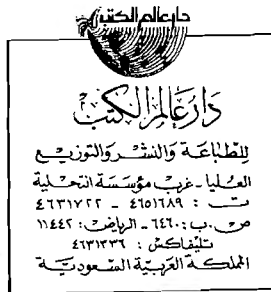 دار عالم الكتب
دَار عَالم الكتب
للطبَاعَة وَالنشْر وَالتوزيع
العُليا - غرب مؤسسَة التحلية
ت : ٤٦٥١٦٨٩ - ٤٦٣١٧٢٢
ص . ب : ٦٤٦٠ - الرياض : ١١٤٤٢
تليفاكس : ٤٦٣١٣٣٦
المملكة العَربيّة السّعوديّة